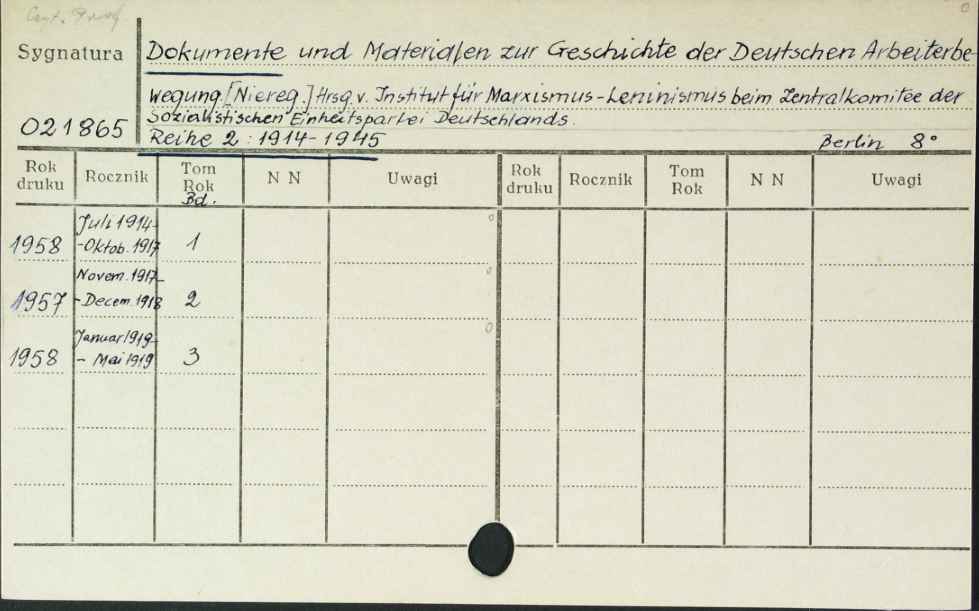 Sygnatura
Dokumente und Materialen zur Geschichte der Deutschen Arbeiterbe
wegung. [Niereg.] Hrsg. v. Institut für Marxismus-Leninismus beim Zentralkomitee der
Sozialistischen Einheitspartei Deutschlands.
021865
Reihe 2 : 1914-1945 Berlin 8°
Rok druku Rocznik Tom Rok Bd. N N Uwagi Rok druku Rocznik Tom Rok N N Uwagi
1958 Juli 1914- -Oktob. 1917 1
1957 Novem. 1917- -Decem. 1918 2
1958 Januar 1919- - Mai 1919 3